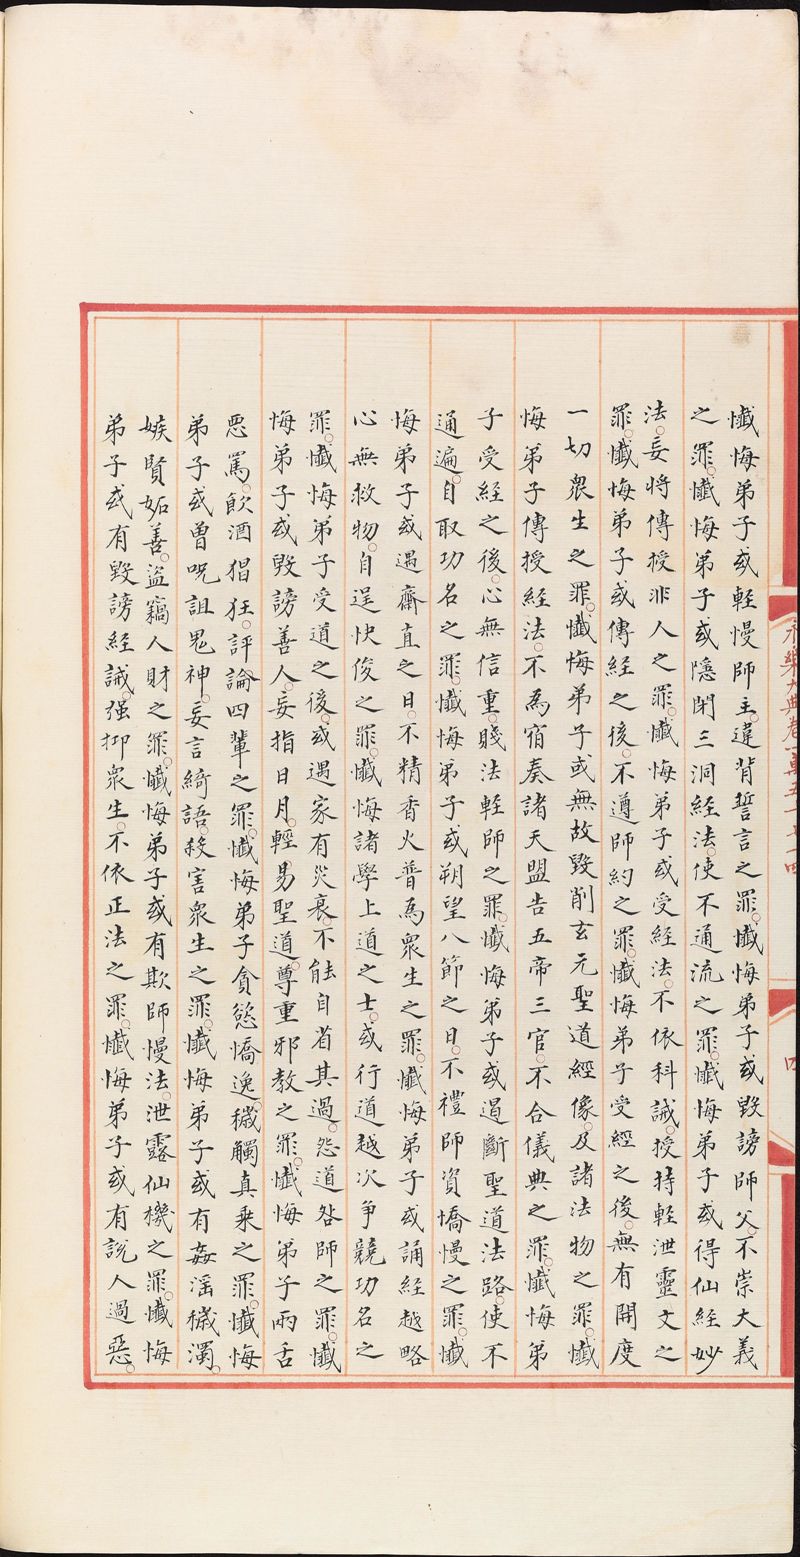 永樂大典卷一萬五千七十四
四
懺悔弟子或輕慢師主。違背誓言之罪。懺悔弟子或毀謗師父。不崇大義
之罪。懺悔弟子或隱閉三洞經法。使不通流之罪。懺悔弟子或得仙經妙
法。妄將傳授非人之罪。懺悔弟子或受經法。不依科誡。授持輕泄靈文之
罪。懺悔弟子或傳經之後。不遵師約之罪。懺悔弟子受經之後。無有開度
一切衆生之罪。懺悔弟子或無故毀削玄元聖道經像。及諸法物之罪。懺
悔弟子傳授經法。不為宿奏諸天盟告五帝三官。不合儀典之罪。懺悔弟
子受經之後。心無信重。賤法輕師之罪。懺悔弟子或遏斷聖道法路。使不
通遍。自取功名之罪。懺悔弟子或朔望八節之日。不禮師資憍慢之罪。懺
悔弟子或遇齋直之日。不精香火普為衆生之罪。懺悔弟子或誦經越略
心無救物。自逞快俊之罪。懺悔諸學上道之士。或行道越次爭競功名之
罪。懺悔弟子受道之後。或遇家有災衰。不能自省其過。怨道咎師之罪。懺
悔弟子或毀謗善人。妄指日月。輕易聖道。尊重邪教之罪。懺悔弟子兩舌
惡罵。飲酒猖狂。評論四輩之罪。懺悔弟子貪慾憍逸。穢觸真乘之罪。懺悔
弟子或曾呪詛鬼神。妄言綺語。殺害衆生之罪。懺悔弟子或有姦滛穢濁。
嫉賢妬善。盜竊人財之罪。懺悔弟子或有欺師慢法。泄露仙機之罪。懺悔
弟子或有毀謗經誡。强抑衆生。不依正法之罪。懺悔弟子或有說人過惡。